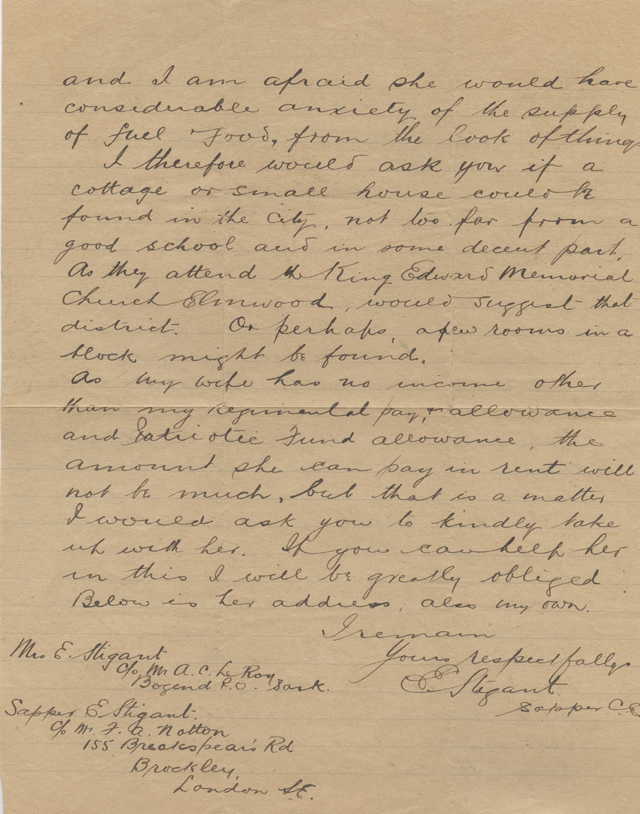 and I am afraid she would have
considerable anxiety of the supply
of fuel & food, from the look of things
I therefore would ask you if a
cottage or small house could be
found in the city, not too far from a
good school and in some decent part.
As they attend the King Edward Memorial
Church Elmwood, would suggest that
district. Or perhaps, a few rooms in a
block might be found.
As my wife has no income other
than my regimental pay, & allowance
and Patriotic Fund allowance, the
amount she can pay in rent will
not be much, but that is a matter
I would ask you to kindly take
up with her. If you can help her
in this I will be greatly obliged
Below is her address, also my own.
I remain
Yours respectfully
E Stigant.
Sapper C.E
Mrs E. Stigant
c/o Mr A. C. Le Roy
Bogend P.O. Sask.
Sapper E Stigant.
c/o Mr. F. A. Notton
155 Breakspear's Rd
Brockley,
London S.E.